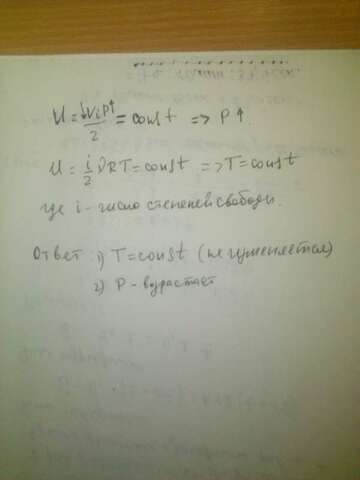 U = ↓Vi P↑ / 2 = const => P↑
U = i/2 νRT = const => T = const
где i - число степенев свободы.
Ответ: 1) T = const (не изменяется)
2) P - возрастает